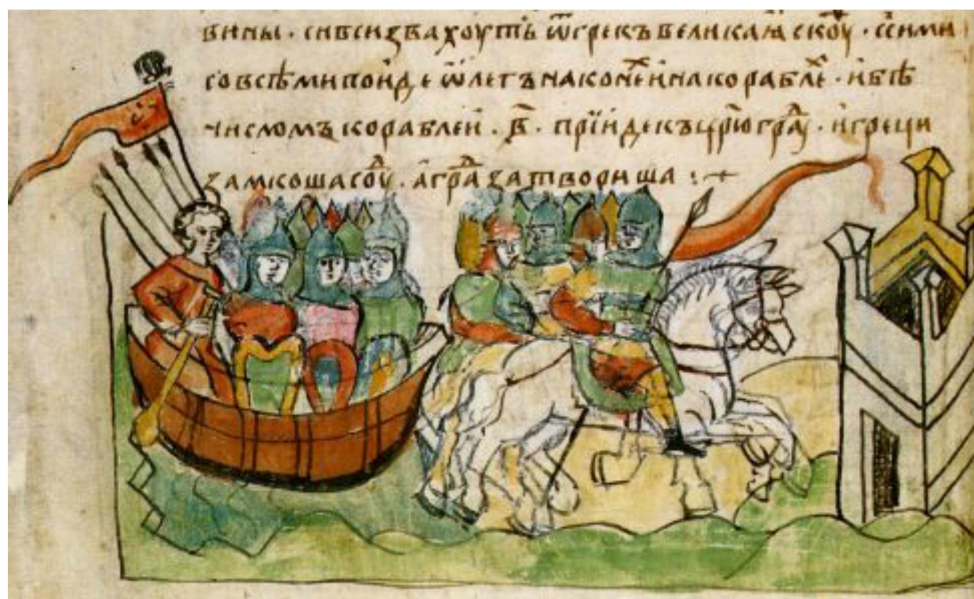 вины · сивсизвахоуть ѿгрекъвеликаꙗскоу · ссими
совсѣмипоидеѡлегънаконеⷯинакораблеⷯ · ибѣ
числомъкораблеи · в҃ · прїидекъцр҃югра̑ⷣ · игреци
замкошасоуⷣ · аграⷣзатвориша :~